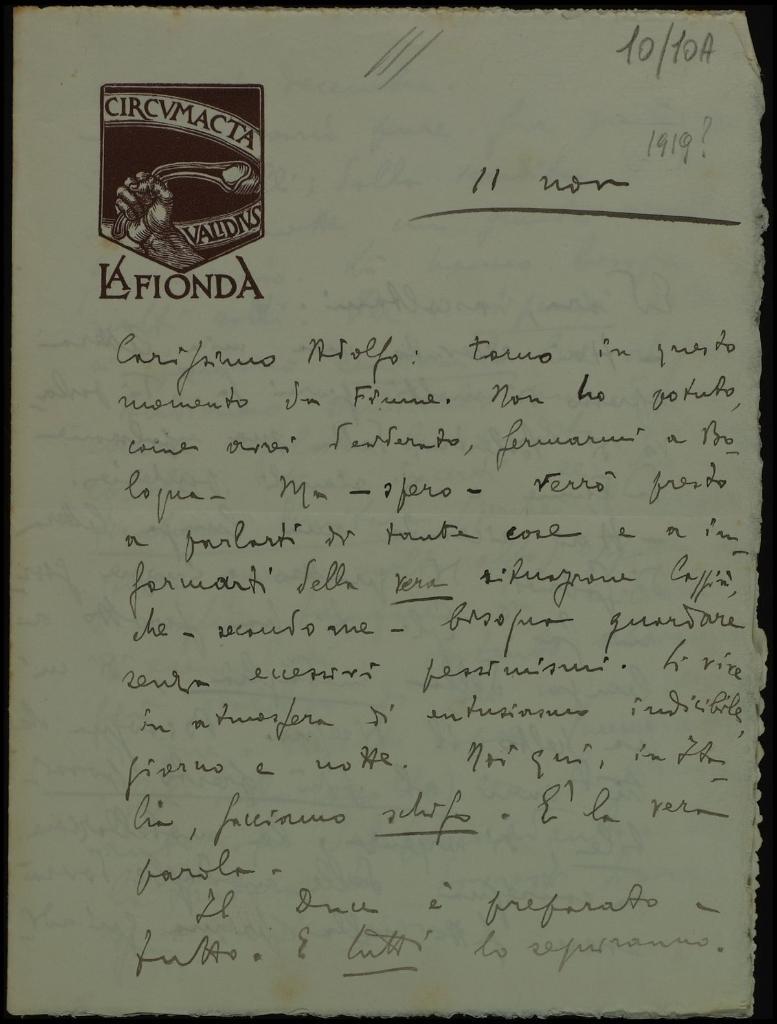 10/10A
1919?
CIRCVMACTA
VALIDIVS
LA FIONDA
11 nov
Carissimo Adolfo: torno in questo
momento da Fiume. Non ho potuto,
come avrei desiderato, fermarmi a Bo-
logna - Ma - spero - verrò presto
a parlarti di tante cose e a in-
formarti della vera situazione lassù,
che - secondo me - bisogna guardare
senza eccessivi pessimismi. Si vive
in atmosfera di entusiasmo indicibile,
giorno e notte. Noi qui, in Ita-
lia, facciamo schifo. E' la vera
parola.
Il Duce è preparato a
tutto. E tutti lo seguiranno.